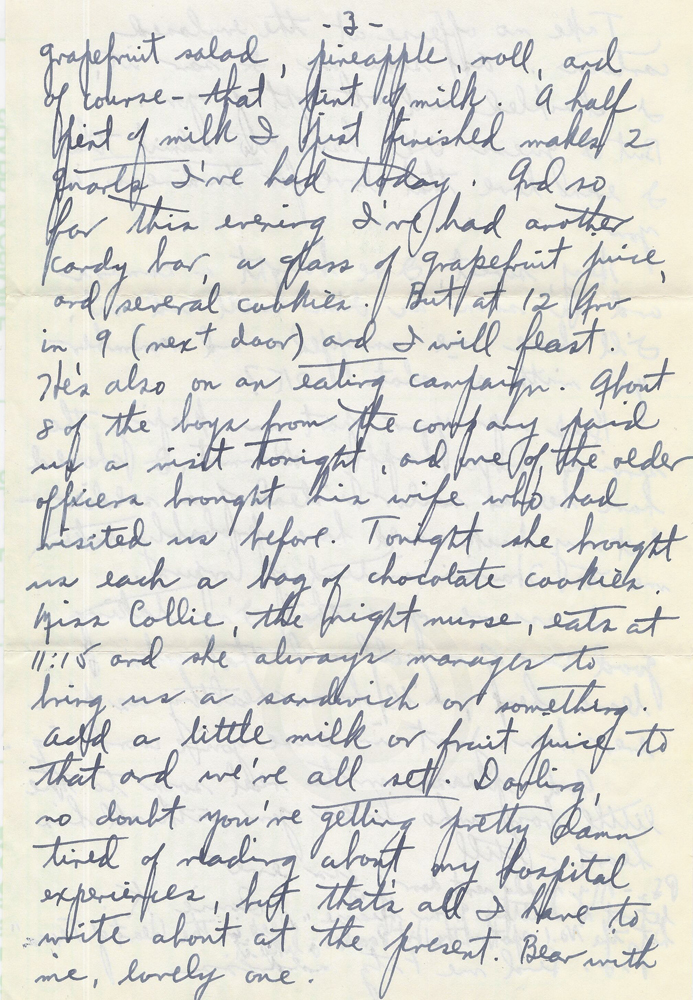 - 3 -
grapefruit salad, pineapple, roll, and
of course - that pint of milk. A half
pint of milk I just finished makes 2
quarts I've had today. And so
far this evening I've had another
candy bar, a glass of grapefruit juice,
and several cookies. But at 12
in 9 (next door) and I will feast.
He's also on an eating campaign. About
8 of the boys from the company paid
us a visit tonight, and one of the older
officers brought his wife who had
visited us before. Tonight she brought
us each a bag of chocolate cookies.
Miss Collie, the night nurse, eats at
11:15 and she always manages to
bring us a sandwich or something.
Add a little milk or fruit juice to
that and we're all set. Darling,
no doubt you're getting pretty damn
tired of reading about my hospital
experiences, but that's all I have to
write about at the present. Bear with
me, lovely one.